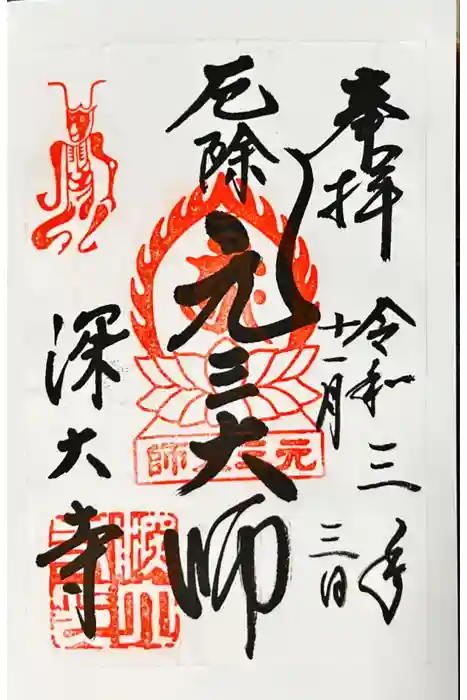 奉拝
令和三年
十一月
三日
厄除
元三大師
元三大師
深大寺